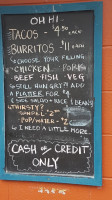 OH HI
TACOS - $4 EACH
BURRITOS - $11 EACH
→ CHOOSE YOUR FILLING
CHICKEN PORK
BEEF FISH VEG
→ STILL HUNGRY? ADD
A PLATTER FOR $4
& SIDE SALAD + RICE & BEANS
→ THIRSTY?
POP/WATER - $2
→ I NEED A LITTLE MORE
CASH OR CREDIT
ONLY